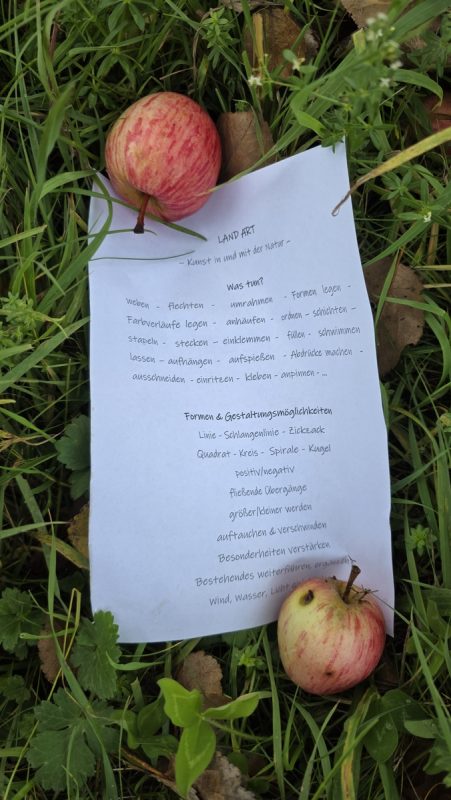 LAND ART
- Kunst in und mit der Natur -
Was tun?
weben - flechten - umrahmen - Formen legen -
Farbverläufe legen - anhäufen - ordnen - schichten -
stapeln - stecken - einklemmen - füllen - schwimmen
lassen - aufhängen - aufspießen - Abdrücke machen -
ausschneiden - einritzen - kleben - anpinnen - ...
Formen & Gestaltungsmöglichkeiten
Linie - Schlangenlinie - Zickzack
Quadrat - Kreis - Spirale - Kugel
positiv/negativ
fließende Übergänge
größer/kleiner werden
auftauchen & verschwinden
Besonderheiten verstärken
Bestehendes weiterführen, ergänzen
Wind, Wasser, Licht